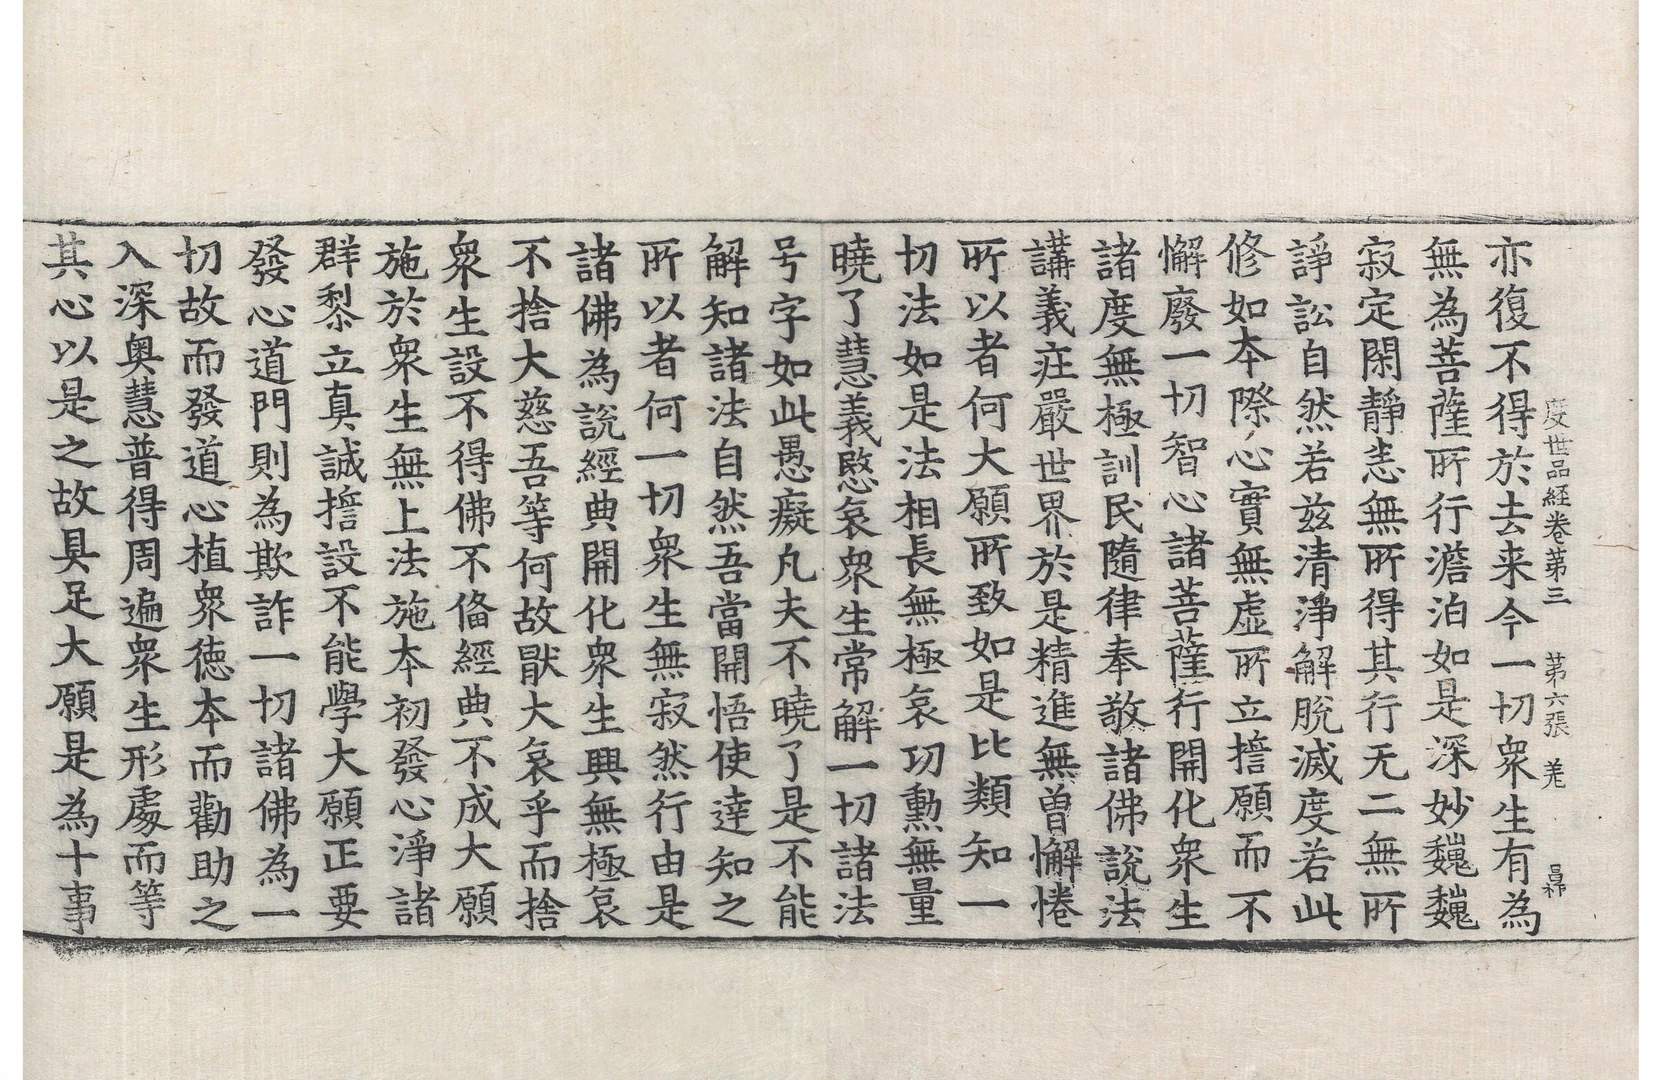 度世品経卷第三　第六張　羌
亦復不得於去来今一切衆生有為
無為菩薩所行澹泊如是深妙巍巍
寂定閑靜恚無所得其行无二無所
諍訟自然若兹清淨解脫滅度若此
修如本際心實無虛所立擔願而不
懈廢一切智心諸菩薩行開化衆生
諸度無極訓民隨律奉敬諸佛說法
講義莊嚴世界於是精進無曽懈惓
所以者何大願所致如是比類知一
切法如是法相長無極哀功勳無量
曉了慧義愍哀衆生常解一切諸法
号字如此愚癡凡夫不曉了是不能
解知諸法自然吾當開悟使達知之
所以者何一切衆生無寂然行由是
諸佛為說經典開化衆生興無極哀
不捨大慈吾等何故猒大哀乎而捨
衆生設不得佛不俻經典不成大願
施於衆生無上法施本初發心淨諸
群黎立真誠擔設不能學大願正要
發心道門則為欺詐一切諸佛為一
切故而發道心植衆徳本而勸助之
入深奥慧普得周遍衆生形處而等
其心以是之故具足大願是為十事